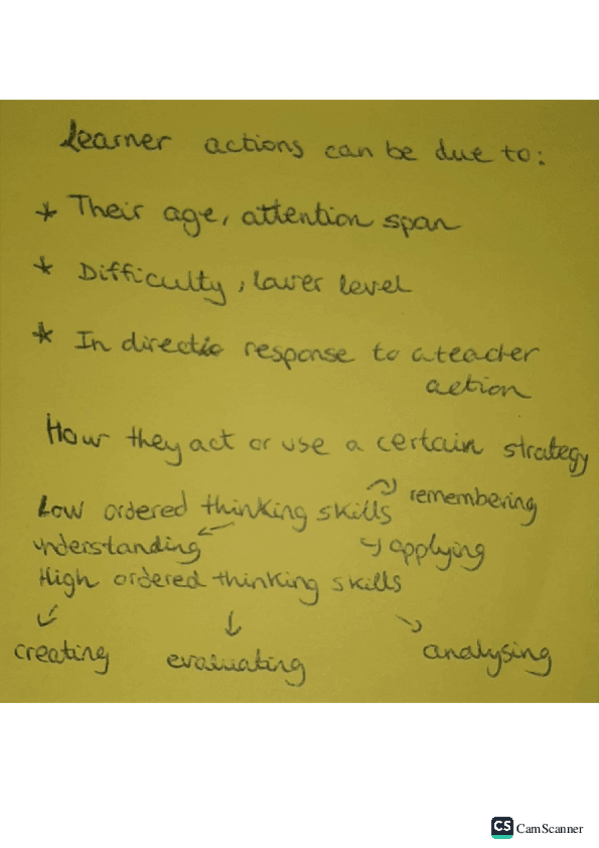 Learner actions can be due to:
* Their age, attention span
* Difficulty, lower level
* In directic response to a teacher
action
How they act or use a certain strategy
Low ordered thinking skills remembering
understanding applying
High ordered thinking skills
creating evaluating analysing
CS CamScanner